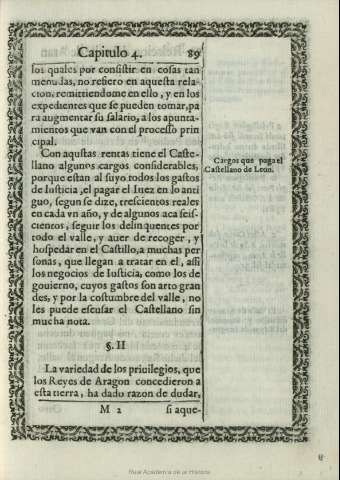 Capitulo 4. 89
los quales por consistir en cosas tan
menudas, no refiero en aquesta rela-
cion, remittiendome en ello, y en los
expedientes que se pueden tomar, pa
ra augmentar su salario, a los apunta-
mientos que van con el processo prin
cipal.
Con aquestas rentas tiene el Caste-
llano algunos cargos considerables,
porque estan al suyo todos los gastos
de Iusticia, el pagar el Iuez en lo anti
guo, segun se dize, trescientos reales
en cada vn año, y de algunos aca seis-
cientos, seguir los delinquentes por
todo el valle, y auer de recoger, y
hospedar en el Castillo, a muchas per
sonas, que llegan a tratar en el, assi
los negocios de Iusticia, como los de
gouierno, cuyos gastos son arto gran
des, y por la costumbre del valle, no
les puede escusar el Castellano sin
mucha nota.
Cargos que paga el
Castellano de Leon.
§. II
La variedad de los priuilegios, que
los Reyes de Aragon concedieron a
esta tierra, ha dado razon de dudar,
M 2 si aque-
Real Academia de la Historia